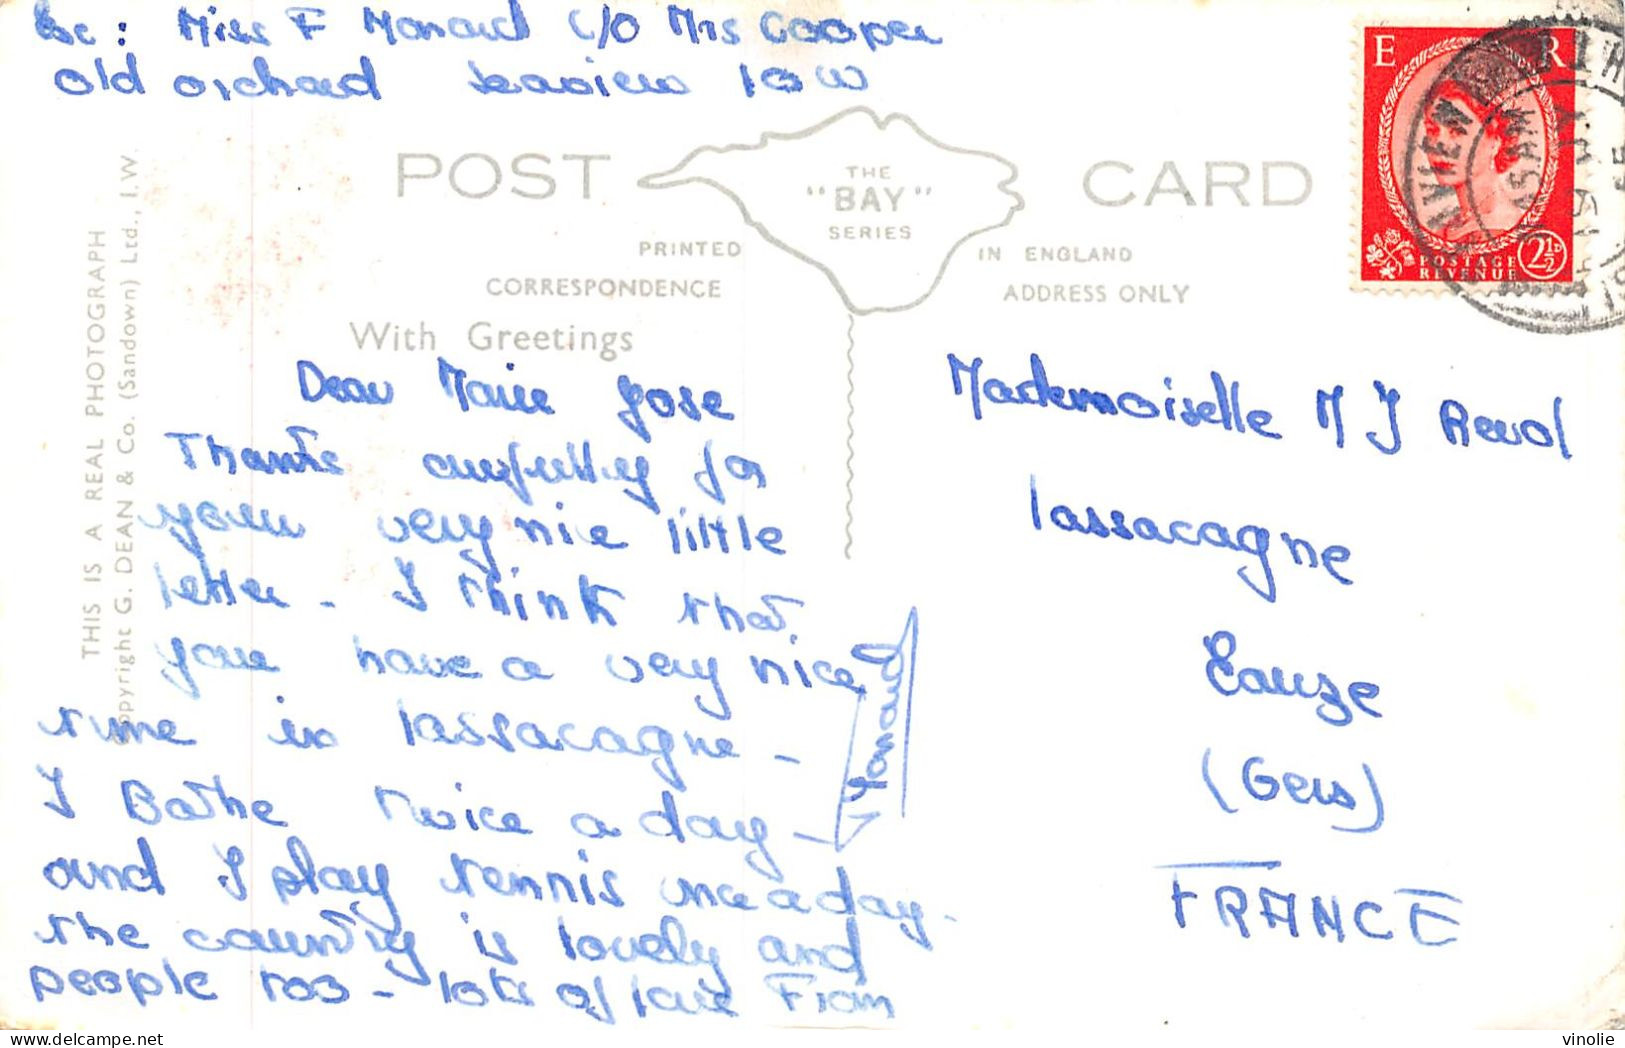 Miss F Monard C/O Mrs Cooper
Old Orchard Seaview IOW
POST CARD
THE
"BAY"
SERIES
PRINTED IN ENGLAND
CORRESPONDENCE ADDRESS ONLY
With Greetings
THIS IS A REAL PHOTOGRAPH
Copyright G. DEAN & Co. (Sandown) Ltd., I.W.
E R
POSTAGE
REVENUE
2½D
Dear Marie Jose
Thanks awfully for
your very nice little
letter - I think that
you have a very nice
time in lassacagne -
I Bathe twice a day -
and I play tennis once a day -
the country is lovely and
people too - lots of love From
Monard
Mademoiselle M J
lassacagne
Eauze
(Gers)
FRANCE
vinolie